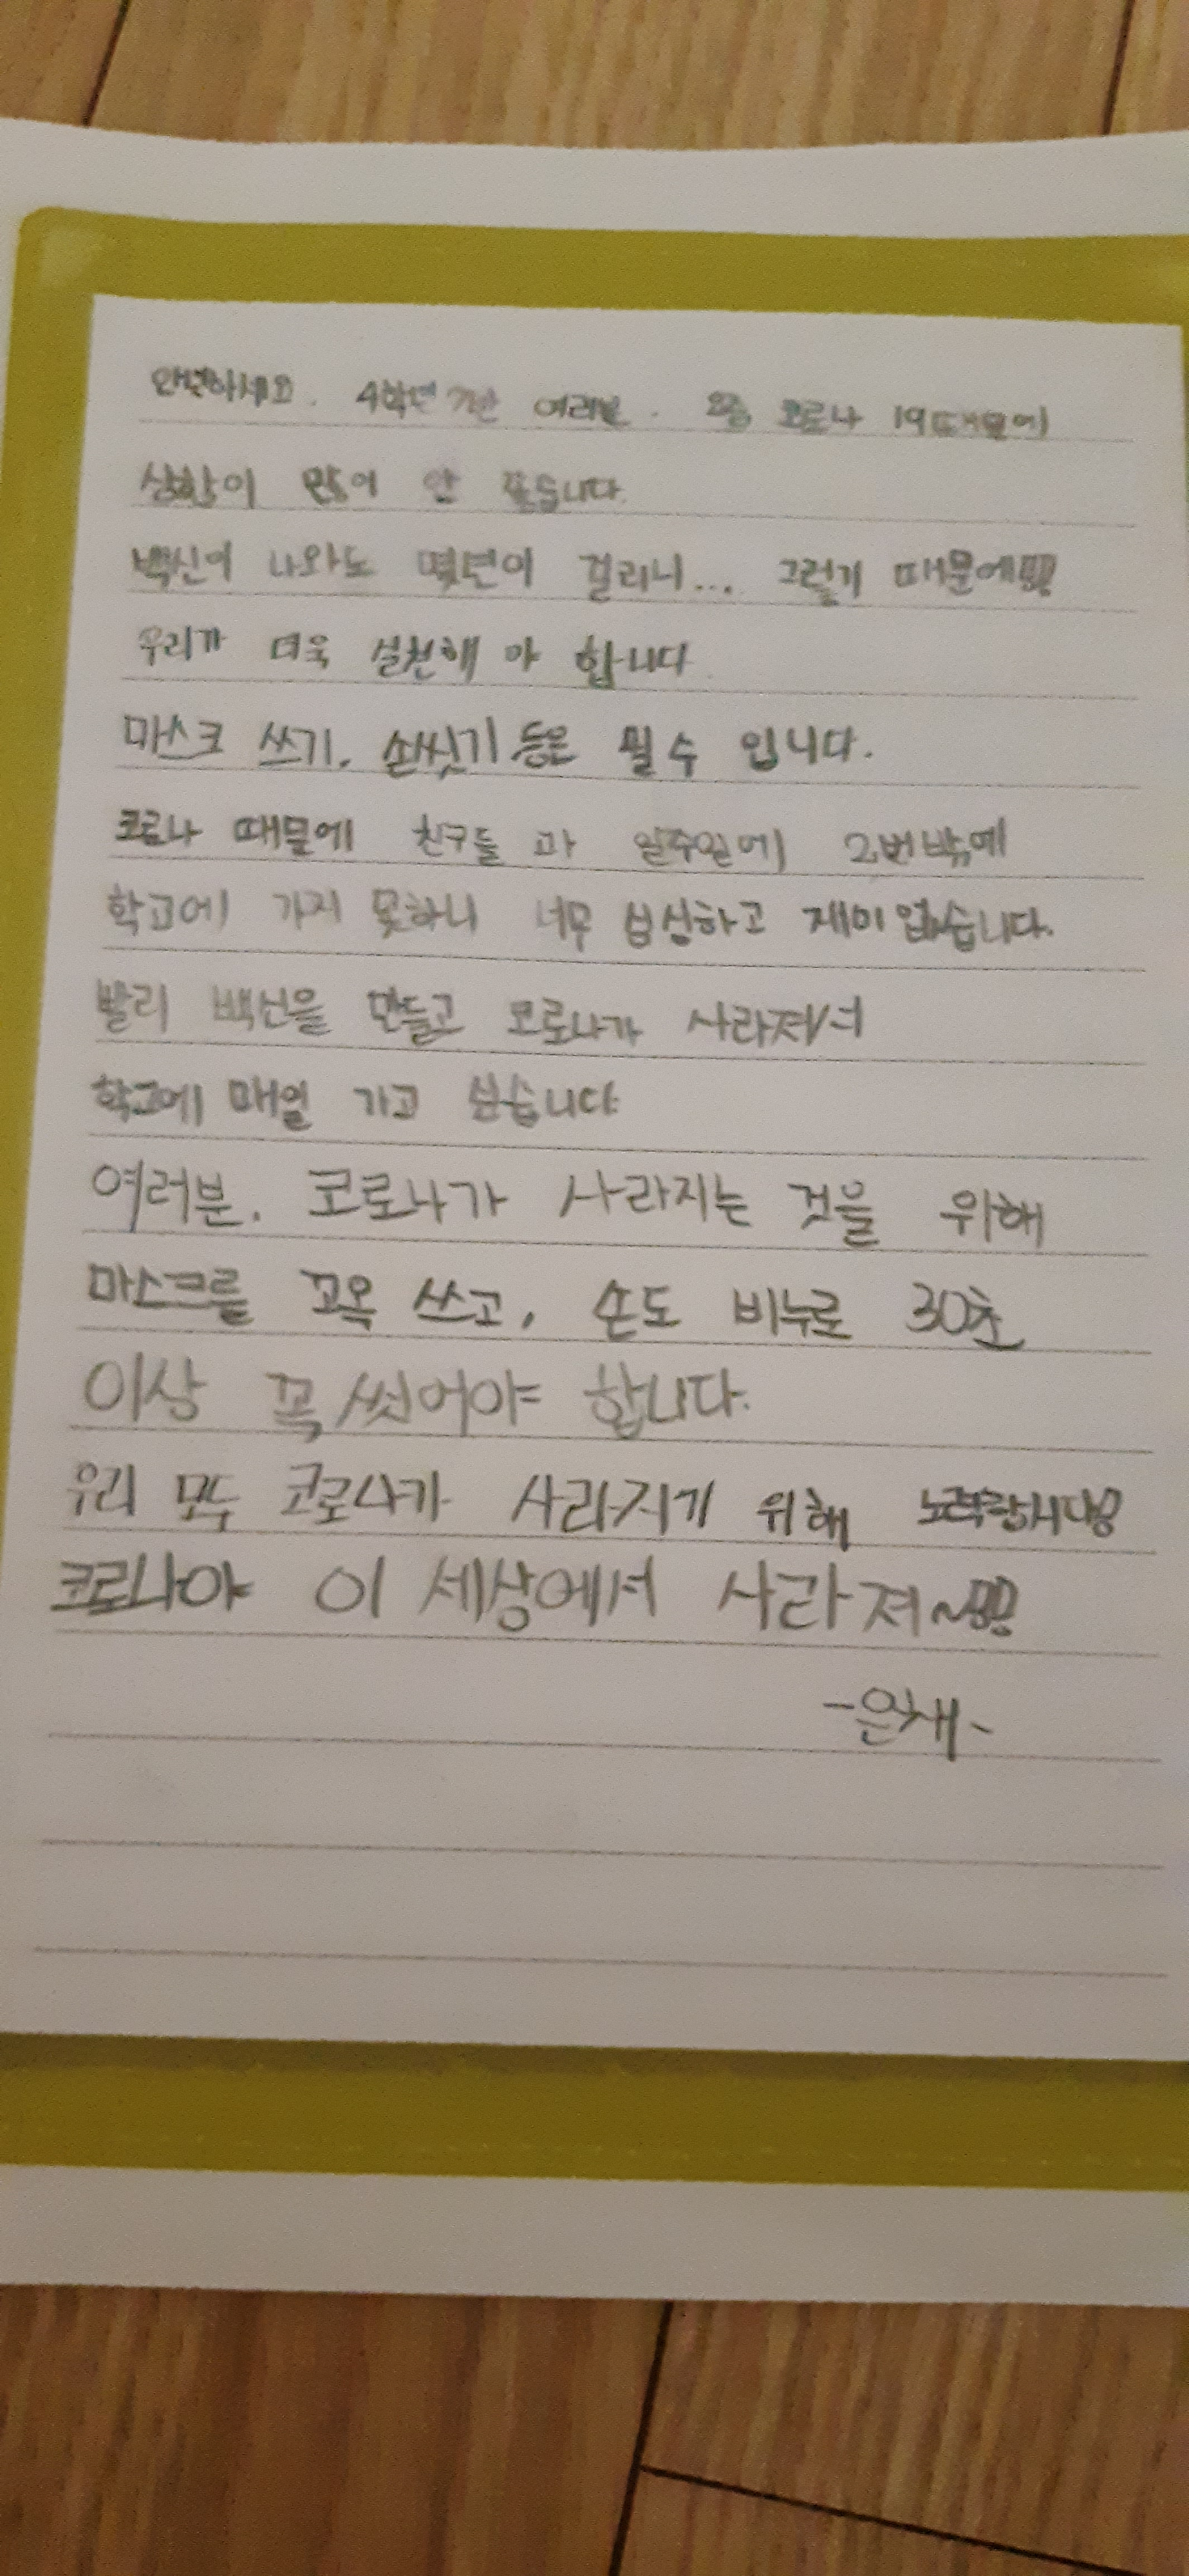 안녕하세요. 4학년 7반 여러분. 요즘 코로나 19때문에
상황이 많이 안 좋습니다.
백신이 나와도 몇년이 걸리니... 그렇기 때문에!!
우리가 더욱 실천해 야 합니다.
마스크 쓰기, 손씻기 등은 필수 입니다.
코로나 때문에 친구들 과 일주일에 2번밖에
학교에 가지 못하니 너무 심심하고 재미 없습니다.
빨리 백신을 만들고 코로나가 사라져서
학교에 매일 가고 싶습니다.
여러분, 코로나가 사라지는 것을 위해
마스크를 꼬옥 쓰고, 손도 비누로 30초
이상 꼭 씻어야 합니다.
우리 모두 코로나가 사라지기 위해 노력합시다!
코로나야 이 세상에서 사라져~!!
-은채-